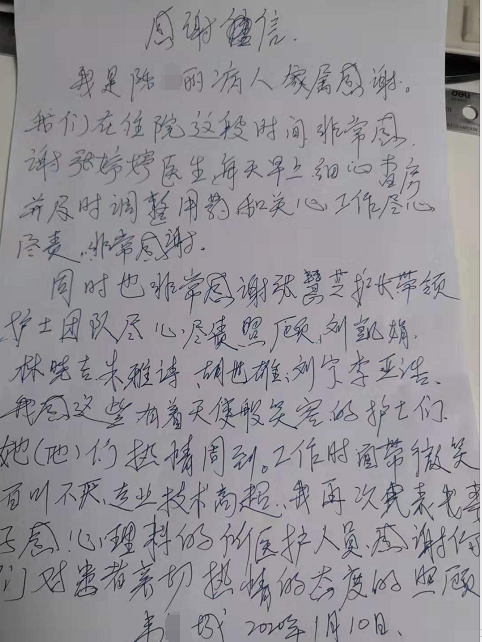 感谢信.
我是陈 丽病人家属感谢。
我们在住院这段时间非常感
谢张婷婷医生每天早上细心查房
并及时调整用药和关心工作尽心
尽责。非常感谢.
同时也非常感谢张 芝护长带领
护士团队尽心尽责照顾,刘凯娟.
林晓吉朱雅诗 胡世雄,刘宁李亚浩.
感这些有着天使般笑容的护士们
她(他)们热情周到。工作时面带微笑
百叫不厌,专业技术高超,我再次
感心理科的所医护人员,感谢你
们对患者亲切热情的态度的照顾
2020年1月10日.
deli